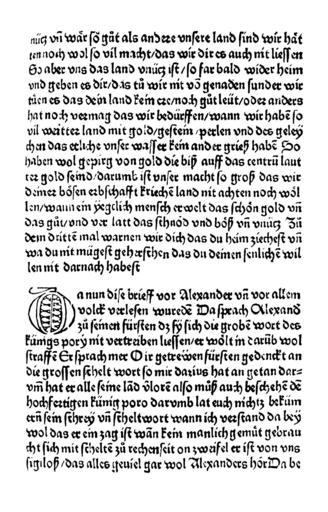 nütz vñ wår so gůt als andere vnsere land sind wir håt
ten noch wol so vil macht/das wir dir es auch nit liessen
So aber vns das land vnnütz ist/so far bald wider heim
vnd geben es dir/das tů wir nit vō genaden sunder wir
tůen es das dein land kein ere/noch gůt leüt/oder anders
hat noch vermag des wir bedürffen/wann wir habē so
vil weitter land mit gold/gestein/perlen vnd des geley
chen das etliche vnser wasser kein ander grieß habē So
haben wol gepirg von gold die biß auff das centrū laut
ter gold seind/darumb ist vnser macht so groß das wir
deiner bösen erbschafft kriechē land nit achten noch wöl
len/wann ein yegclich mensch erwelt das schön gold vñ
das gůt/vnd ver latt das schnöd vnd böß vñ vnnütz Zů
dem dritten mal warnen wir dich das du heim ziechest vñ
wa du nit mügest geherschen das du deinen senliche wil
len nit darnach habest
Da nun dise brieff vor Alexander vñ vor allem
volck verlesen wurdē Da sprach Alexand
zů seinen fürsten dz sy sich die grobē wort des
künigs pory nit vertreiben liessen/er wölt in darüb wol
straffē Er sprach mer O ir getrewen fürsten gedenckt an
die grossen schelt wort so mir darius hat an getan dar=
vm̄ hat er alle seine lād vlorē also můß auch beschehē dē
hochfertigen künig poro darumb lat euch nichtz bekům
ern sein schrey vñ scheltwort wann ich verstand da bey
wol das er ein zag ist wān kein manlich gemůt gebrau
cht sich mit scheltē zů rechen seit on zweifel er ist von vns
sigloß/das alles geuiel gar wol Alexanders hör Da be